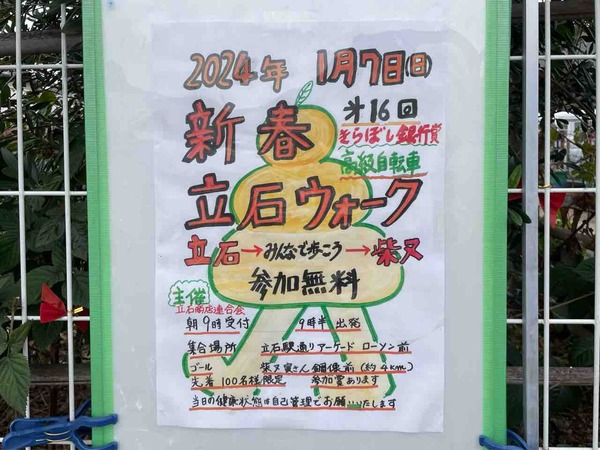 2024年 1月7日(日)
新春
才16回
そらぼし銀行賞
高級自転車
立石ウォーク
立石→みんなで歩こう→柴又
参加無料
主催
立石商店連合会
朝9時受付 9時半出発
集合場所 立石駅通りアーケード ローソン前
ゴール 柴又寅さん銅像前(約4km)
先着100名様限定 参加賞あります
当日の健康状態は自己管理でお願いいたします